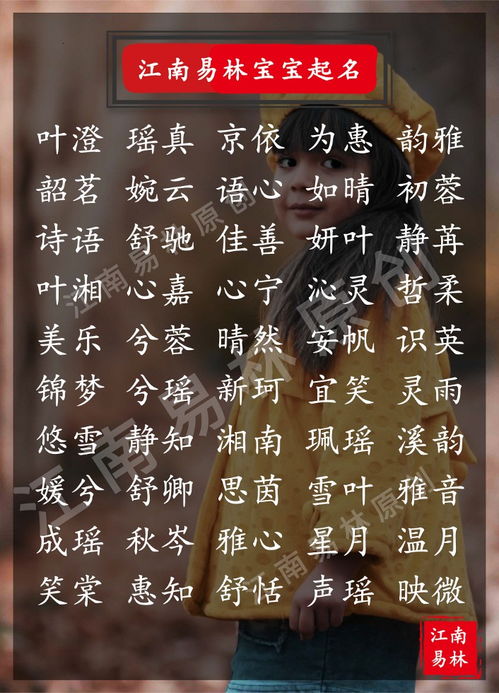 江南易林宝宝起名
叶澄 瑶真 京依 为惠 韵雅
韶茗 婉云 语心 如晴 初蓉
诗语 舒驰 佳善 妍叶 静苒
叶湘 心嘉 心宁 沁灵 哲柔
美乐 兮蓉 晴然 安帆 识英
锦梦 兮瑶 新珂 宜笑 灵雨
悠雪 静知 湘南 珮瑶 溪韵
媛兮 舒卿 思茵 雪叶 雅音
成瑶 秋岑 雅心 星月 温月
笑棠 惠知 舒恬 声瑶 映微
江南易林原创
江南易林原创
江南易林原创
江南
易林